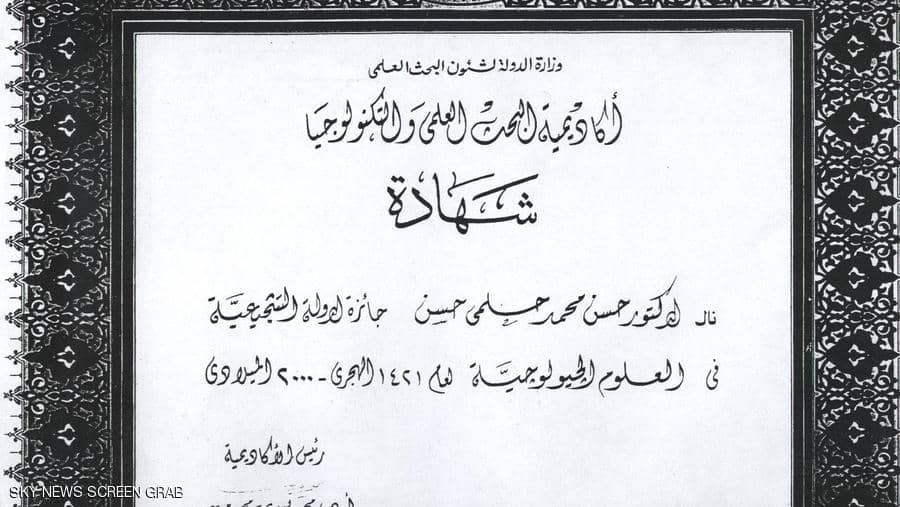 وزارة الدولة لشئون البحث العلمى
أكاديمية البحث العلمى والتكنولوجيا
شهادة
نال الدكتور حسن محمد حلمى حسن جائزة الدولة التشجيعية
فى العلوم الجيولوجية لعام ١٤٢١ الهجرى - ٢٠٠٠ الميلادى
رئيس الأكاديمية
SKY NEWS SCREEN GRAB